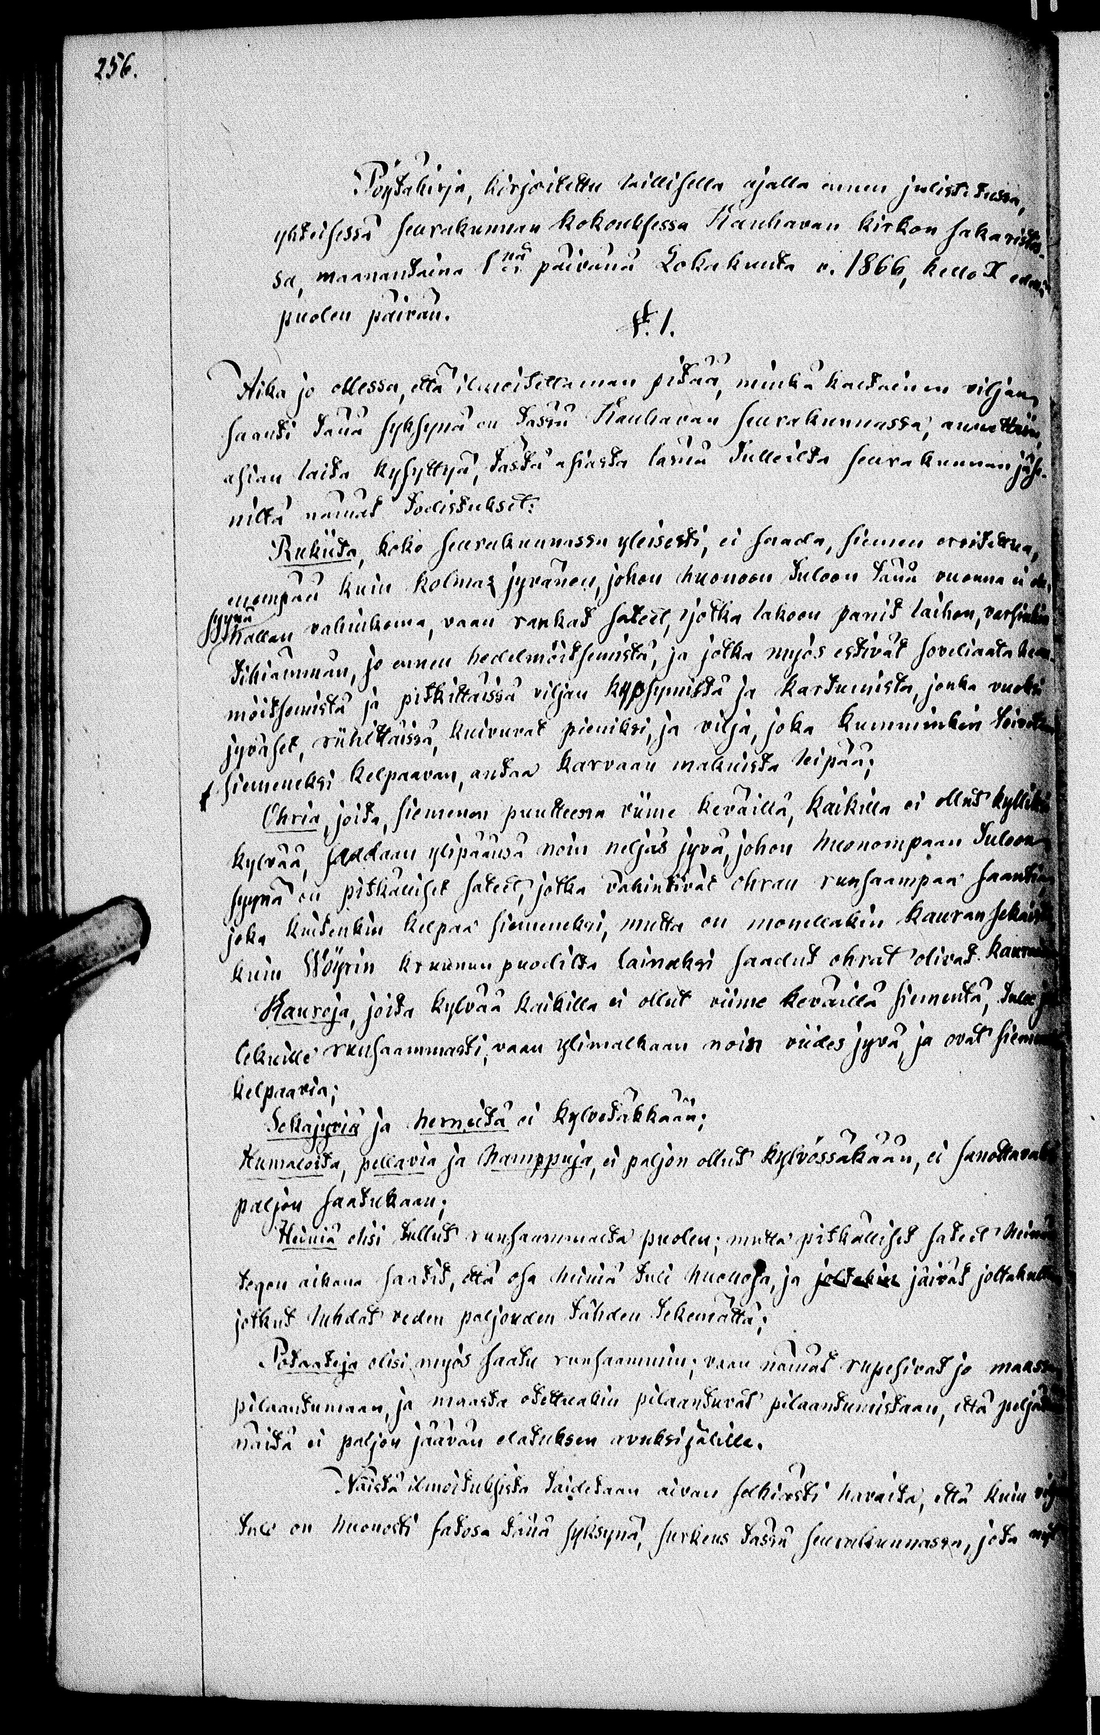 256.
Pöytäkirja, kirjoitettu laillisella ajalla ennen julistetussa,
yhteisessä seurakunnan kokouksessa Kauhavan kirkon sakaristos-
sa, maanantaina 1nä päivänä Lokakuuta v. 1866, kello X edellä
puolen päivän.
§. 1.
Aika jo ollessa, että ilmoitettaman pitää, minkäkaltainen viljan
saanti tänä syksynä on tässä Kauhavan seurakunnassa, annettiin,
asian laita kysyttyä, tästä asiasta läsnä tulleilta seurakunnan jäse-
niltä nämät todistukset:
Rukiita, koko seurakunnassa yleisesti, ei saada, siemen eroitettua,
enempää kuin kolmas jyvänen, johon huonoon tuloon tänä vuonna ei ole,
syynä
hallan vahinkoma, vaan rankat sateet, jotka lakoon panit laihon, varsinkin
tihiämmän, jo ennen hedelmöitsemistä, ja jotka myös estivät soveliaata hedel-
möitsemistä ja pitkittäissä viljan kypsymistä ja kartumista, jonka vuoksi
jyväset, riihittäissä, kuivuvat pieniksi, ja vilja, joka kumminkin
siemeneksi kelpaavan, antaa karvaan makuista leipää;
Ohria, joita, siemenen puutteessa viime keväillä, kaikilla ei ollut kylliksi
kylvää, saadaan ylipäänsä noin neljäs jyvä, johon huonompaan tuloon
syynä on pitkälliset sateet, jotka vahinkivät ohran runsaampaa saantia
joka kuitenkin kelpaa siemeneksi, mutta on monellakin kauran sekaista
kuin Wöyrin kruunun puodilta lainaksi saadut ohrat olivat
Kauroja, joita kylvää kaikilla ei ollut viime keväillä siementä, tulee
runsaammasti, vaan ylimalkaan noin viides jyvä, ja ovat
kelpaavia;
Sekajyviä ja herneitä ei kylvetäkkään;
Humaloita, pellavia ja hamppuja, ei paljon ollut kylvössäkään, ei sanottavaksi
paljon saatukaan;
Heiniä olisi tullut runsaammalta puolen; mutta pitkälliset sateet heinän
teqon aikana saatit, että osa heiniä tuli huonoja, ja joltakin jäivät
jotkut luhdat veden paljouden tähden tekemättä;
Potaateja olisi myös saatu runsaammin; vaan nämät rupesivat jo maassa
pilaantumaan, ja maasta otettuakin pilaantuvat pilaantumistaan, että peljätään
näitä ei paljon jäävän elatuksen avuksi jälille.
Näistä ilmoituksista taidetaan aivan selkiästi havaita, että kuin
tulo on huonosti satosa tänä syksynä, surkeus tässä seurakunnassa, jota